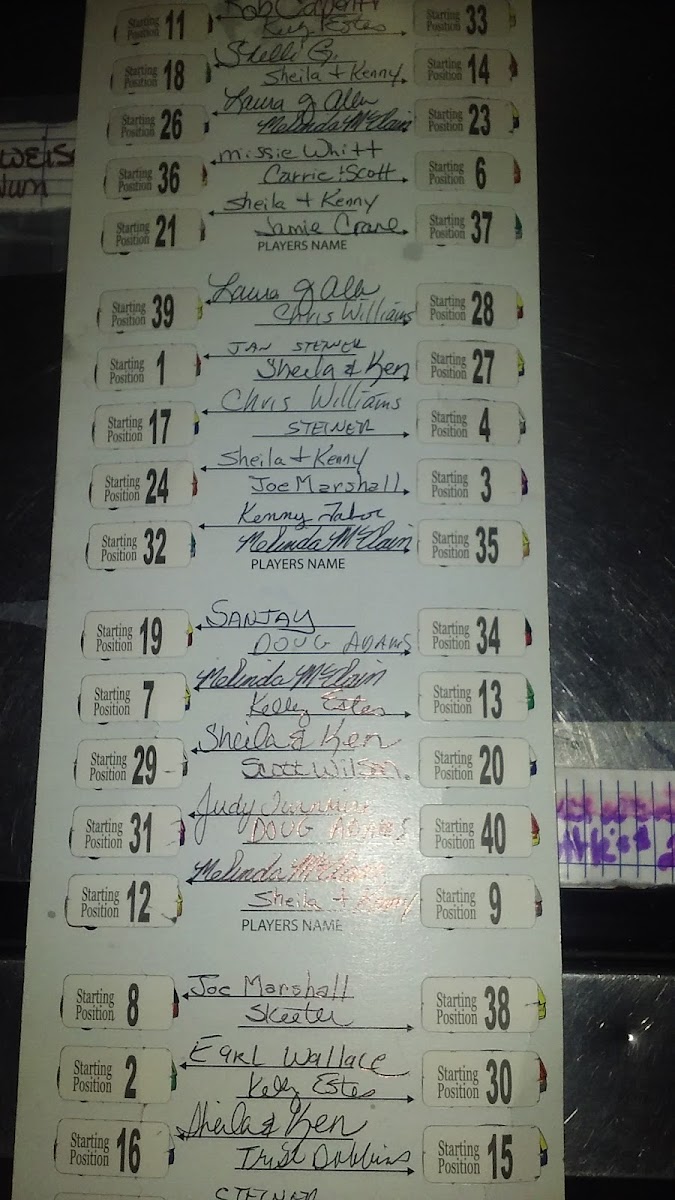 Starting Position 11 Bob
Kelly Estes Starting Position 33
Starting Position 18 Shelli G.
Sheila + Kenny Starting Position 14
Starting Position 26 Laura & Alen
Melinda McClain Starting Position 23
Starting Position 36 Missie Whitt
Carrie + Scott Starting Position 6
Starting Position 21 Sheila + Kenny
Jamie Crane Starting Position 37
PLAYERS NAME
Starting Position 39 Laura & Alen
Chris Williams Starting Position 28
Starting Position 1 JAN STEINER
Sheila & Ken Starting Position 27
Starting Position 17 Chris Williams
STEINER Starting Position 4
Starting Position 24 Sheila + Kenny
Joe Marshall Starting Position 3
Starting Position 32 Kenny Tabor
Melinda McClain Starting Position 35
PLAYERS NAME
Starting Position 19 SANJAY
DOUG ADAMS Starting Position 34
Starting Position 7 Melinda McClain
Kelly Estes Starting Position 13
Starting Position 29 Sheila & Ken
Scott Wilson. Starting Position 20
Starting Position 31 Judy
DOUG ADAMS Starting Position 40
Starting Position 12 Melinda McClain
Sheila + Kenny Starting Position 9
PLAYERS NAME
Starting Position 8 Joe Marshall
Skeeter Starting Position 38
Starting Position 2 EARL WALLACE
Kelly Estes Starting Position 30
Starting Position 16 Sheila & Ken
Trish Dobbins Starting Position 15
STEINER